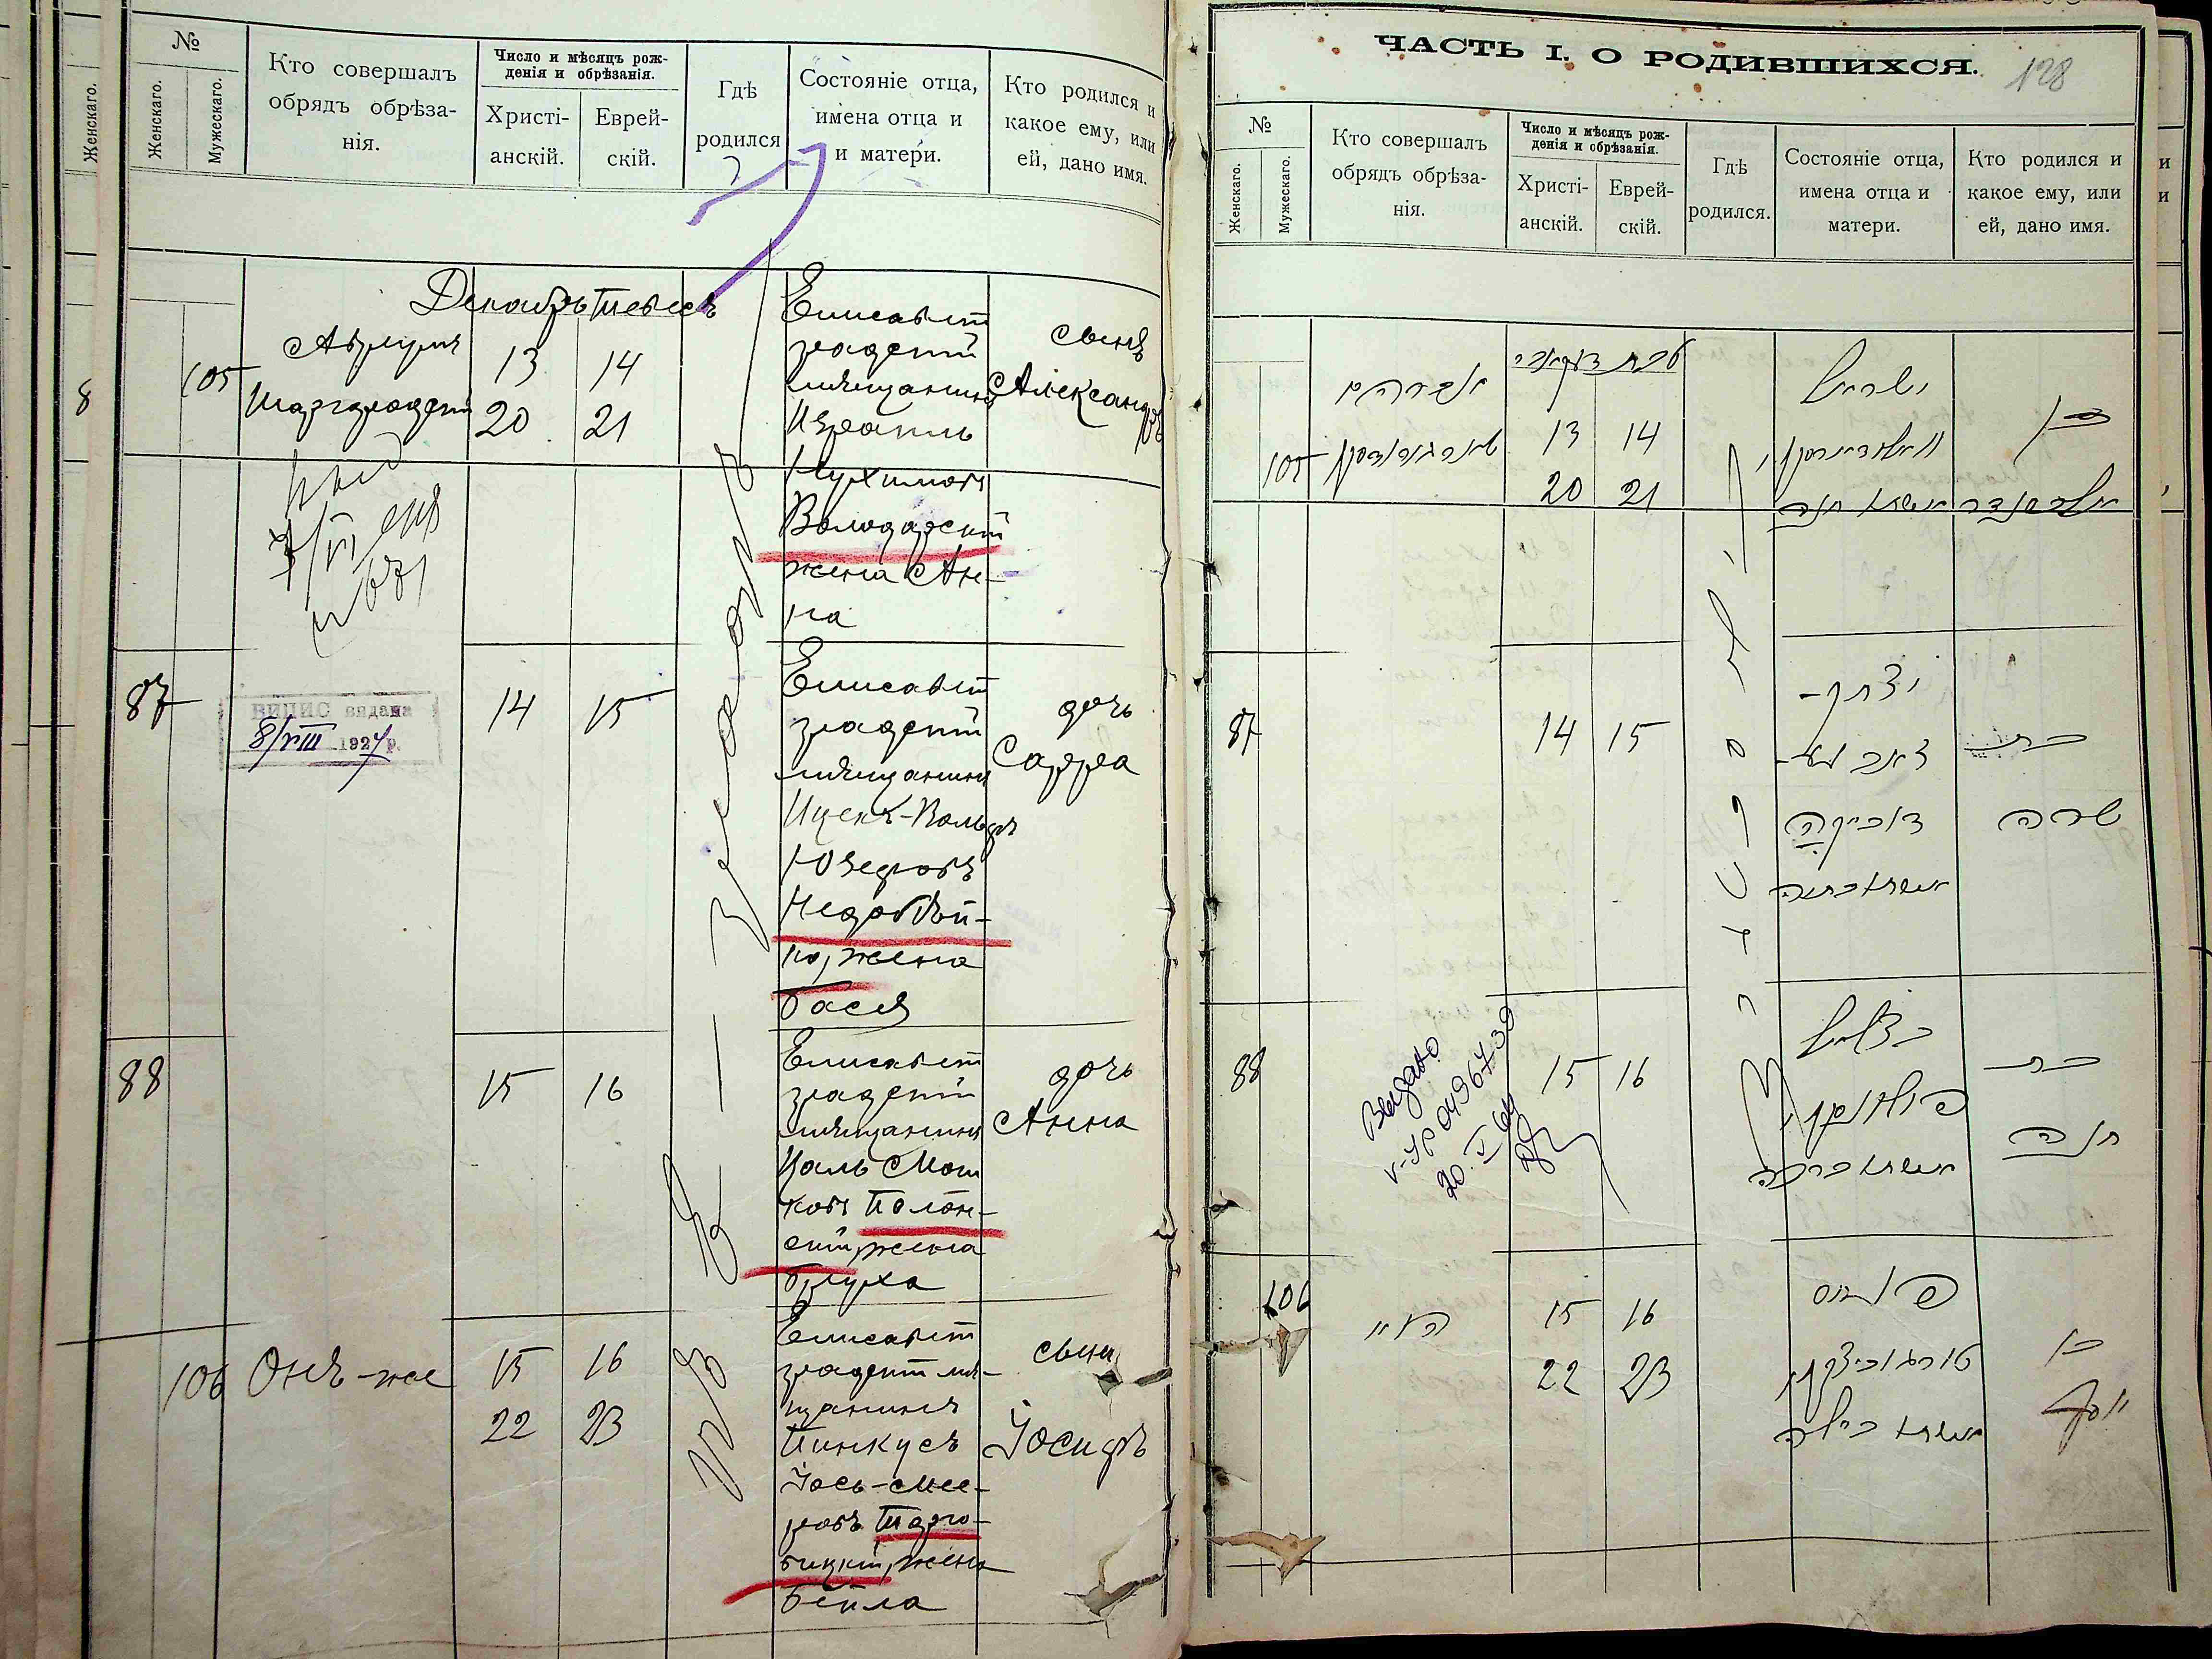 №
Женскаго.
Женскаго.
Мужескаго.
Кто совершалъ
обрядъ обрѣза-
нія.
Число и мѣсяцъ рож-
денія и обрѣзанія.
Христі-
анскій.
Еврей-
скій.
Гдѣ
родился
Состояніе отца,
имена отца и
и матери.
Кто родился и
какое ему, или
ей, дано имя.
8
Декабрь Тебесъ
105
Абрумъ
Шаргродскій
13
14
20
21
Елисавет
градскій
мѣщанинъ
Израиль
Нухимовъ
Володарскій
жена Ан-
на
сынъ
Александръ
87
ВИПИС видана
8/VIII 1927 р.
14
15
Елисавет
градскій
мѣщанинъ
Ицекъ-Вольфъ
Юзефовъ
Недобѣй-
ко, жена
Бася
дочь
Сарра
88
15
16
Елисавет
градскій
мѣщанинъ
Цаль Мош
ковъ Полон-
скій, жена
Бруха
дочь
Анна
106
Онъ-же
15
16
22
23
Елисавет
градскій мѣ-
щанинъ
Пинкусъ
Іось-Мее-
ровъ Торго-
вицкій, жена
Бейла
сынъ
Іосифъ
ЧАСТЬ I. О РОДИВШИХСЯ.
128
№
Женскаго.
Мужескаго.
Кто совершалъ
обрядъ обрѣза-
нія.
Число и мѣсяцъ рож-
денія и обрѣзанія.
Христі-
анскій.
Еврей-
скій.
Гдѣ
родился.
Состояніе отца,
имена отца и
матери.
Кто родился и
какое ему, или
ей, дано имя.
105
אברהם
13
14
20
21
ישראל
בן
87
14
15
יצחק-
בת
שרה
88
Выдано
20.
15
16
בצלאל
בת
חנה
106
הנ״ל
15
16
22
23
פנחס
בן
יוסף